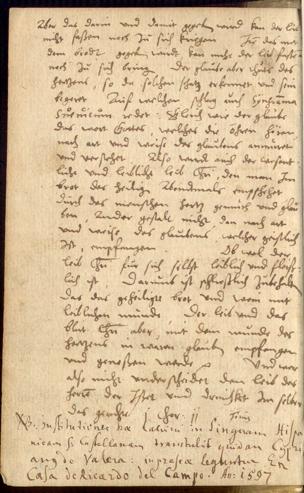 Aber das darin und damit geben wird kan der leib
nicht fassen noch zu sich bringen
dem brodt geben wird kan nicht der leib fassen
noch zu sich bringen. Der glaube aber thuts des
hertzens, so da solchen schatz erkennet und sein
begeret. Auf welchen schlag auch Syngramma
Suevicum redet: Gleich wie der glaube
das wort Gottes, welches die ohren hören
nach art und weise des glaubens annimmet
und verstehet. Also wird auch der
liche und leibliche leib Chri, den man Im
brot des heilige Abendmals empfehet
durch das menschen hertz gemüt und glau
ben, Ander gestalt nicht, den nach art
und weise des glaubens, welcher geistlich
ist, empfangen. Ob wol der
leib Chri für sich selbst leiblich und fleisch
lich ist.
Das das gesegnete brot und wein mit
leiblichem munde. Der leib und das
blut Chri aber, mit dem munde des
hertzens in waren glauben empfangen
und genossen werde. Und wer
also nicht underscheidet den leib des
herrn der Isset und drincket Im selber
das gericht. 1 Cor. 11 Finis
NB. Institutiones has latinu in linguam Hispa
nicam s. Castellanam transtulit quidam Cypri
ano de Valera: impressa leguntur En
Casa de Ricardo del Campo. Ao 1597